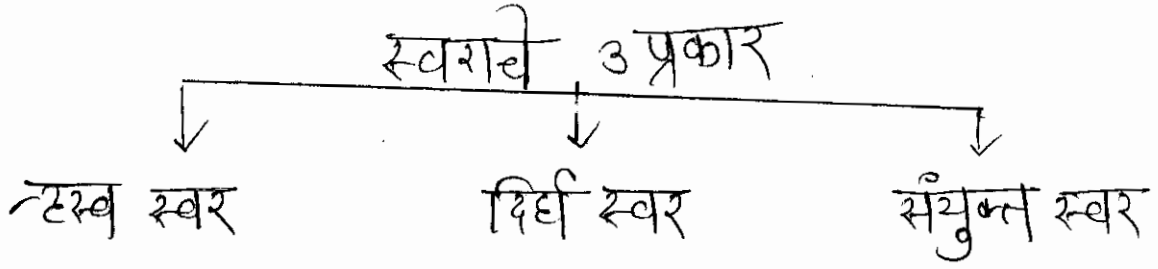 स्वराचे 3 प्रकार
ऱ्हस्व स्वर दिर्घ स्वर संयुक्त स्वर